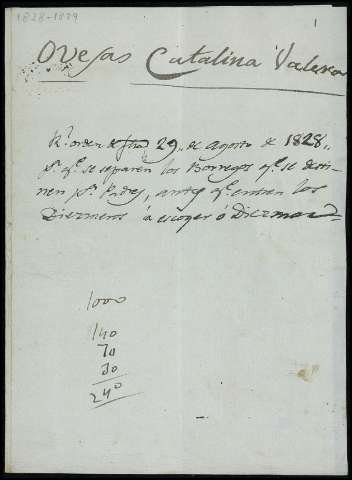 1828-1829
1
Ovejas Catalina Valera
Rl orden de fha 29,, de Agosto de 1828,,
pa. qe. se separen los Borregos qe. se desti-
nen pa. Padres, antes qe. entren los
Diezmeros á escoger ó Diezmar
1000
140
70
30
240